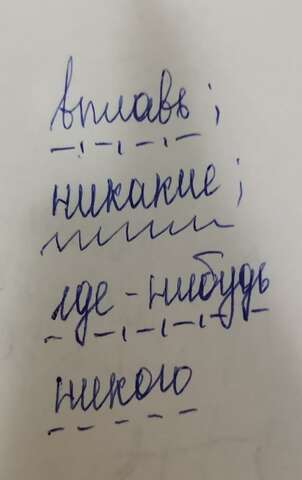 вплавь;
никакие;
где-нибудь
никого